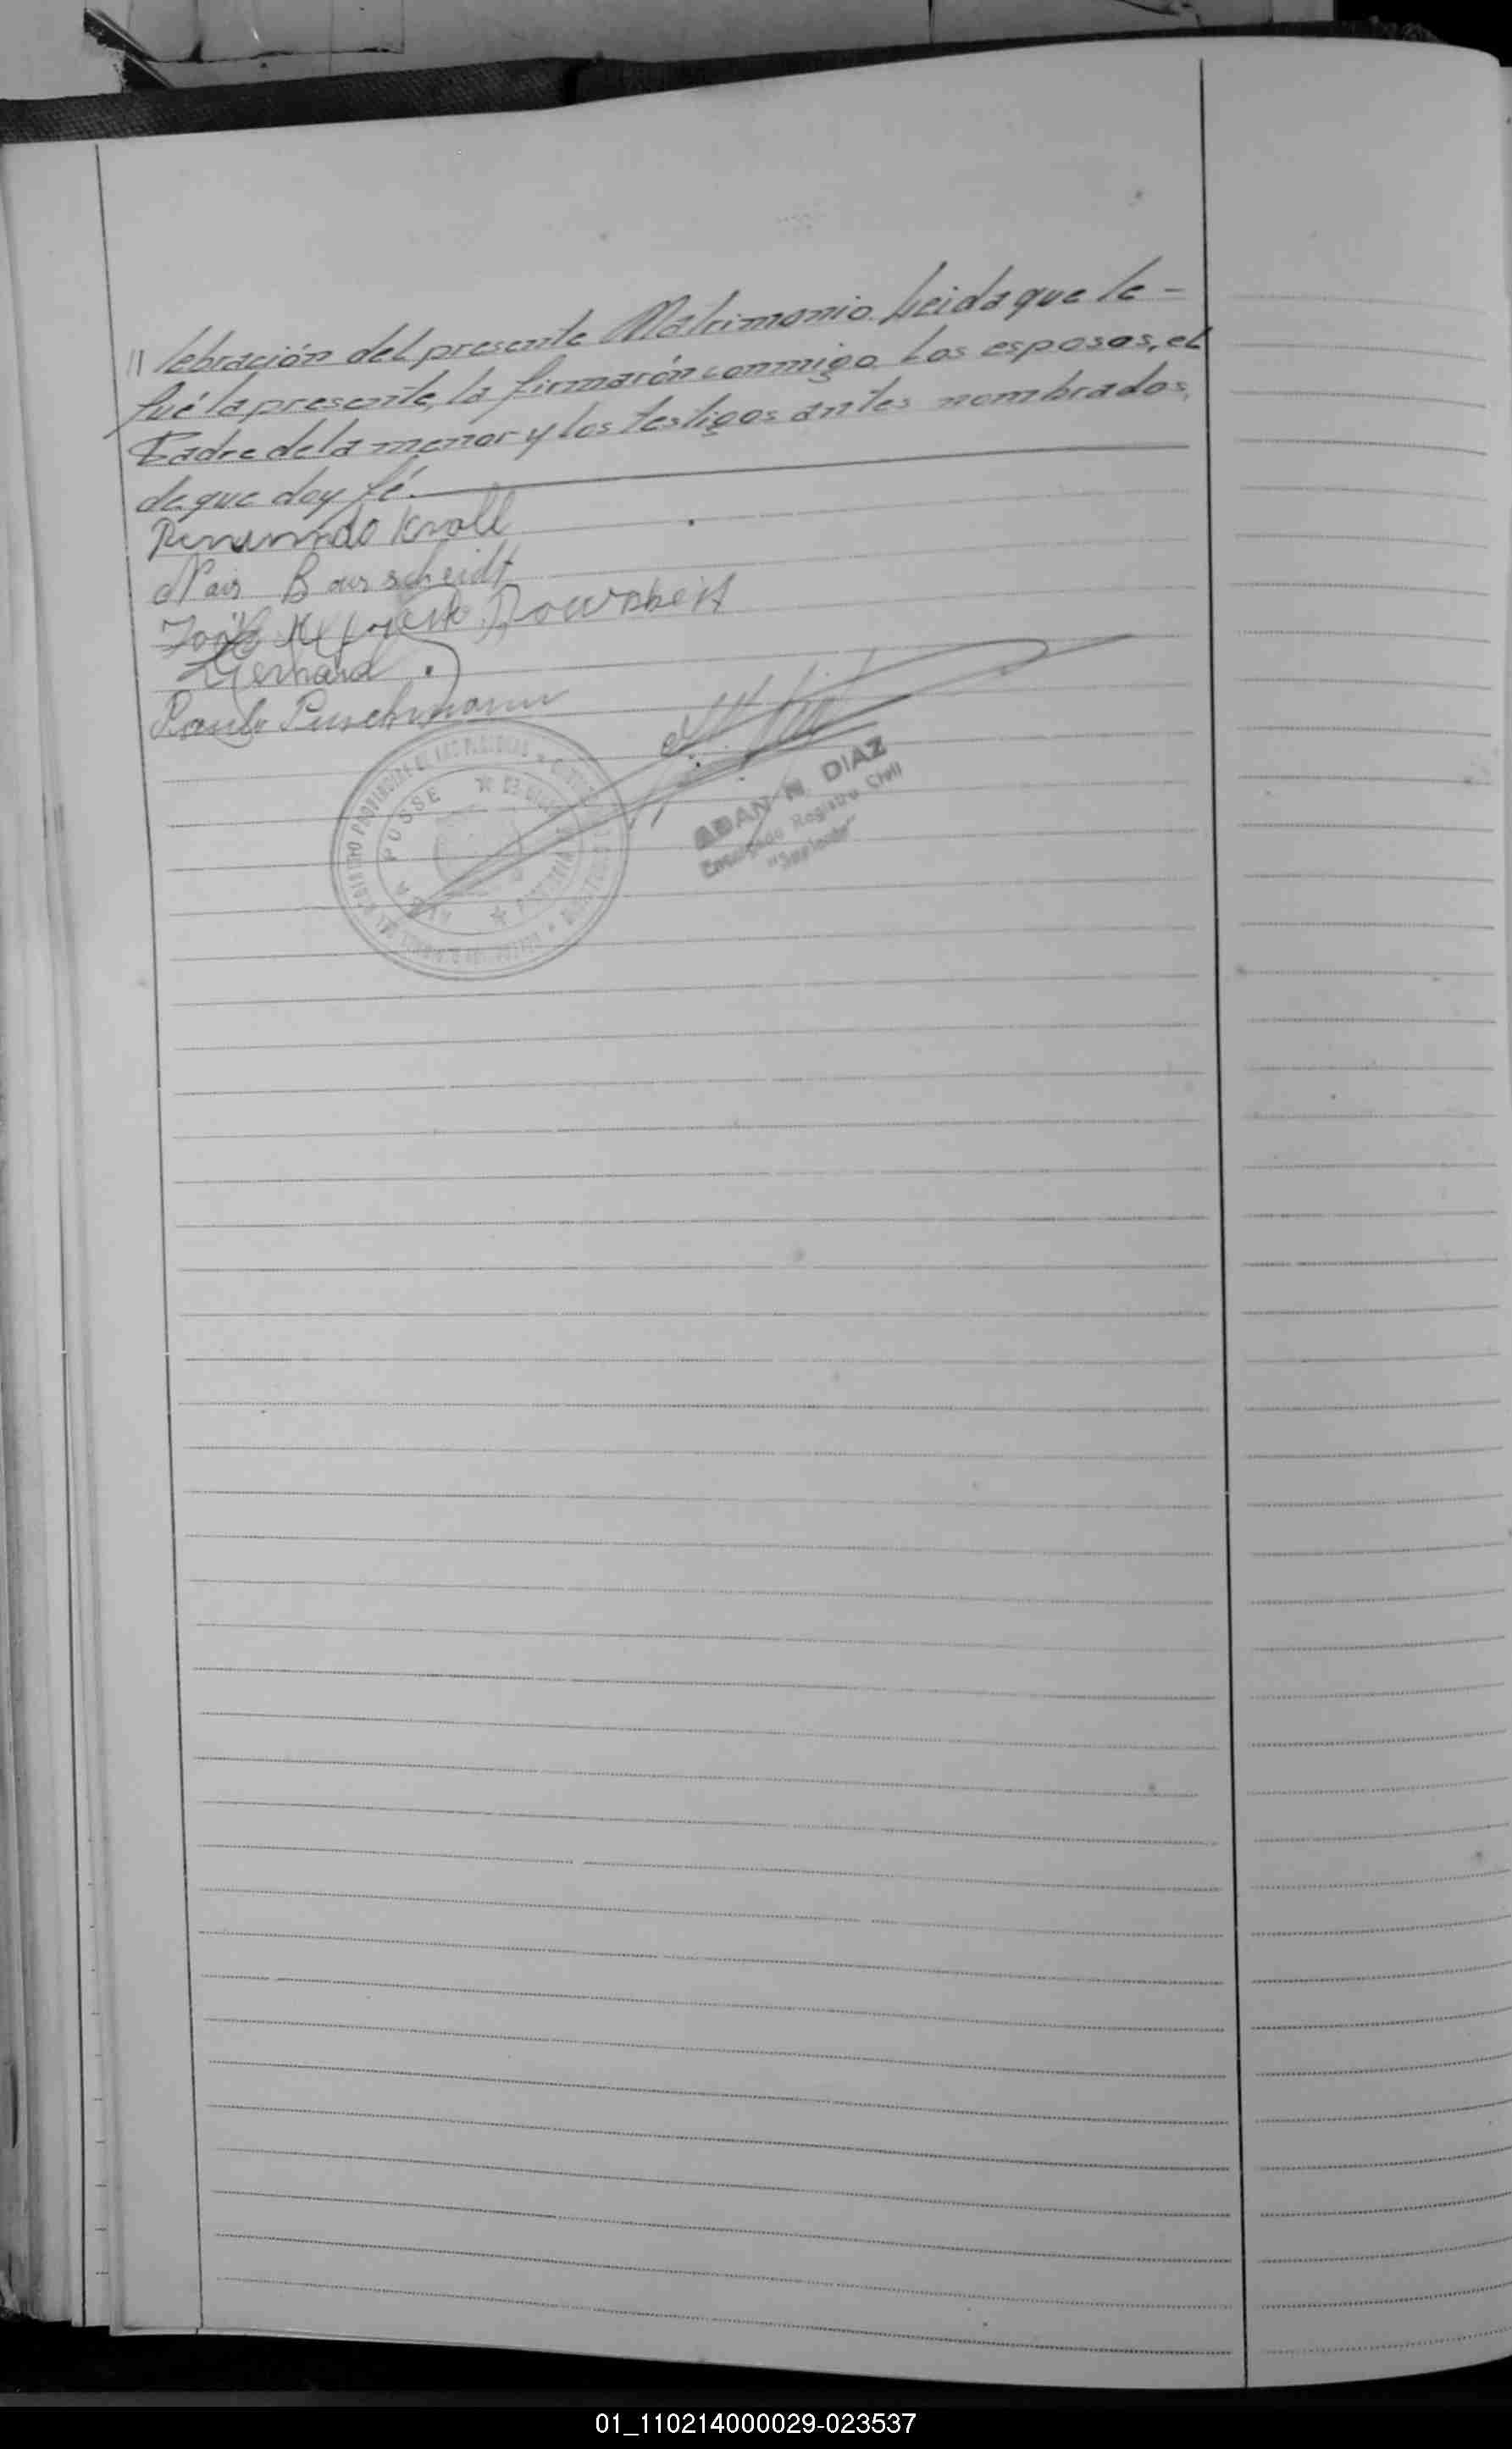 // lebración del presente Matrimonio. Leida que le -
fué la presente, la firmarón conmigo Los esposos, el
Padre de la menor y los testigos antes nombrados,
de que doy fé.
Kroll
Nair Bourscheidt
José
Gerhard
Paulo Puschmann
ADAN N. DIAZ
Encargado Registro Civil
"Suplente"
POSSE
01_110214000029-023537